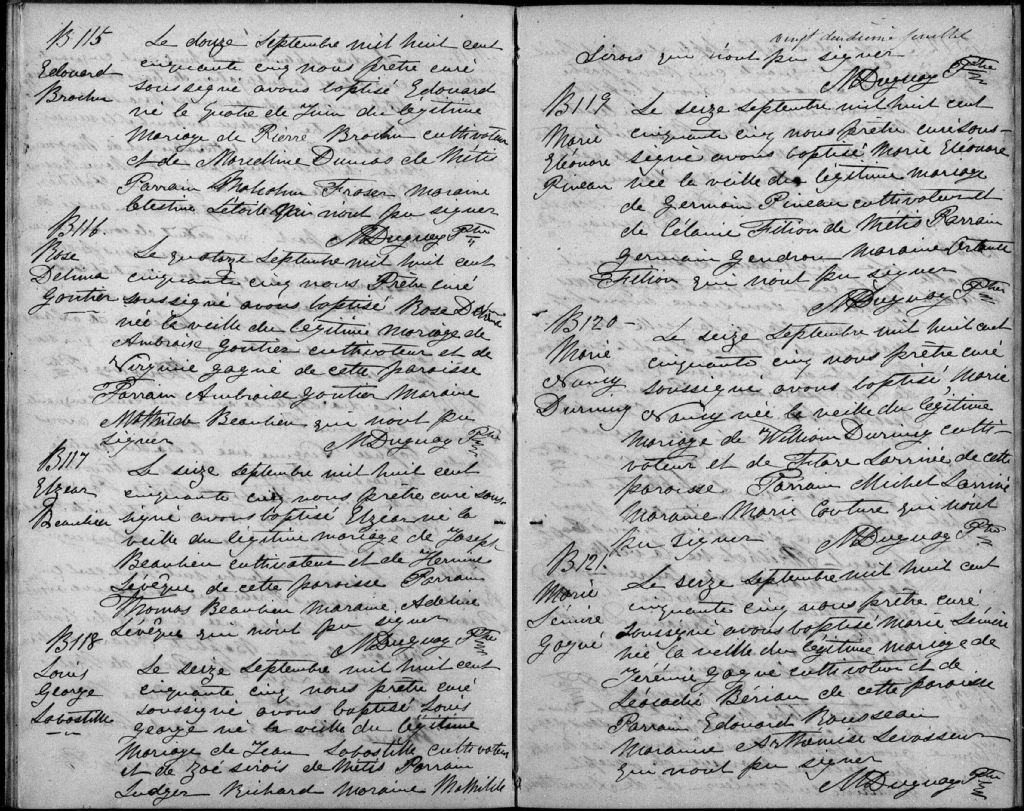 B 115
Edouard
Brochu
Le douze Septembre mil huit cent
cinquante cinq nous prêtre curé
soussigné avons baptisé Edouard
né le quatre de Juin du légitime
mariage de Pierre Brochu cultivateur
et de Marcelline Dumas de Métis
Parrain Malcolm Fraser Maraine
Celestine Létoile qui n'ont pu signer
M Duguay Ptre
B 116.
Rose
Delima
Gontier
Le quatorze Septembre mil huit cent
cinquante cinq nous Prêtre curé
soussigné avons baptisé Rose Delima
née la veille du légitime mariage de
Ambroise Gontier cultivateur et de
Virginie gagné de cette paroisse
Parrain Ambroise Gontier Maraine
Mathilde Beaulieu qui n'ont pu
signer
M Duguay Ptre
B 117
Elzear
Beaulieu
Le seize Septembre mil huit cent
cinquante cinq nous prêtre curé sous-
signé avons baptisé Elzéar né la
veille du légitime mariage de Joseph
Beaulieu cultivateur et de Hermine
Lévêque de cette paroisse Parrain
Thomas Beaulieu Maraine Adeline
Lévêque qui n'ont pu signer
M Duguay Ptre
B 118
Louis
George
Labostille
Le seize Septembre mil huit cent
cinquante cinq nous prêtre curé
soussigné avons baptisé Louis
George né la veille du légitime
mariage de Jean Labostille cultivateur
et de Zoé Sirois de Métis Parrain
Ludger Richard Maraine Mathilde
vingt deuxième feuillet
Sirois qui n'ont pu signer
M Duguay Ptre
B 119
Marie
Eléonore
Pineau
Le seize Septembre mil huit cent
cinquante cinq nous prêtre curé sous-
signé avons baptisé Marie Eléonore
née la veille du légitime mariage
de Germain Pineau cultivateur et
de Célanie Fition de Métis Parrain
Germain Gendron Maraine
Fition qui n'ont pu signer
M Duguay Ptre
B 120
Marie
Nancy
Durning
Le seize Septembre mil huit cent
cinquante cinq nous prêtre curé
soussigné avons baptisé Marie
Nancy née la veille du légitime
mariage de William Durning culti-
vateur et de Larrivée de cette
paroisse Parrain Michel Larrivé
Maraine Marie Couture qui n'ont
pu signer
M Duguay Ptre
B 121.
Marie
Gagné
Le seize Septembre mil huit cent
cinquante cinq nous prêtre curé
soussigné avons baptisé Marie
née la veille du légitime mariage de
Jérémie gagné cultivateur et de
Léocadie de cette paroisse
Parrain Edouard Rousseau
Maraine Arthémise Levasseur
qui n'ont pu signer
M Duguay Ptre